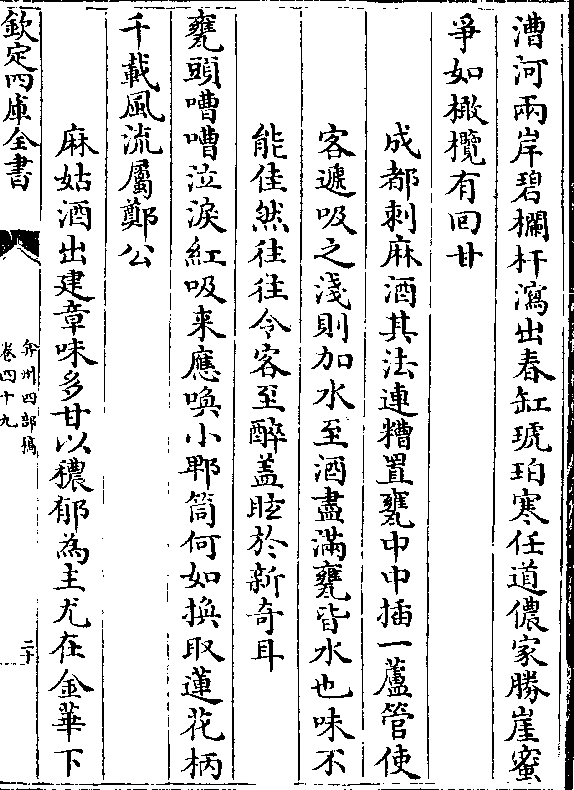 漕河兩岸碧欄杆瀉出春缸琥珀寒任道儂家勝崖蜜
爭如橄欖有回甘
成都刺麻酒其法連糟置甕中中插一蘆管使
客遞吸之淺則加水至酒盡滿甕皆水也味不
能佳然往往令客至醉蓋眩於新奇耳
甕頭嘈嘈泣淚紅吸来應喚小郫筒何如換取蓮花柄
千載風流屬鄭公
麻姑酒出建章味多甘以穠郁為主尤在金華下
欽定四庫全書
弇州四部稿
卷四十九
二十